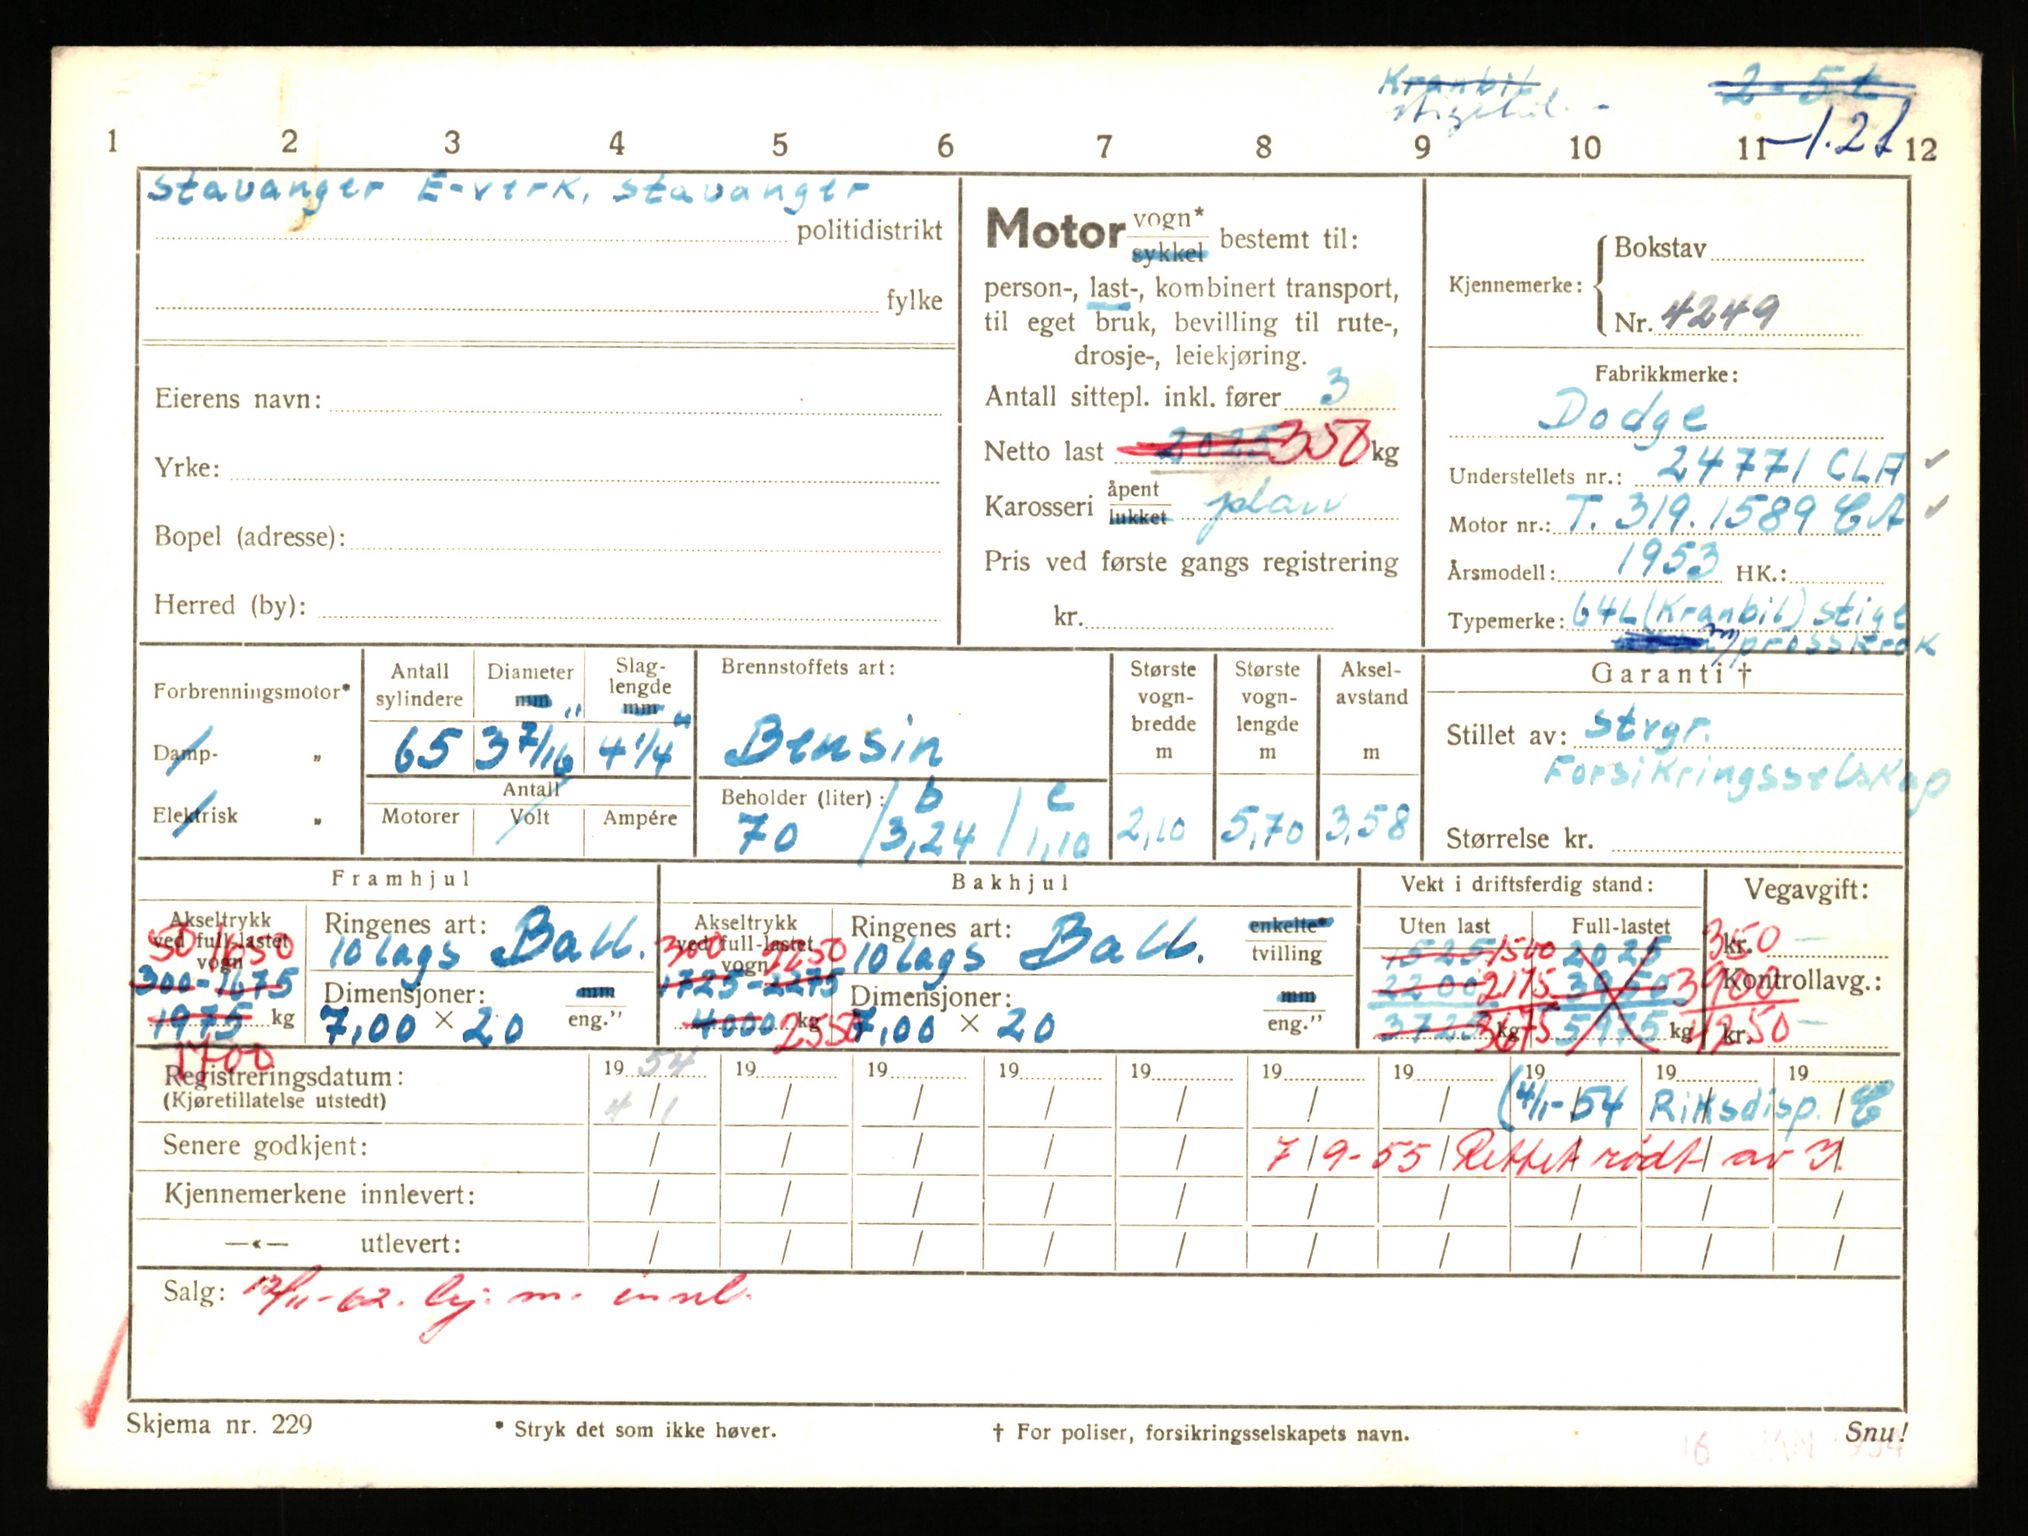 Kranbil 2-5t
stigebil. -
1 2 3 4 5 6 7 8 9 10 11 -1.21 12
Stavanger E-verk, Stavanger
politidistrikt
fylke
Eierens navn:
Yrke:
Bopel (adresse):
Herred (by):
Motor vogn* sykkel bestemt til:
person-, last-, kombinert transport,
til eget bruk, bevilling til rute-,
drosje-, leiekjøring.
Antall sittepl. inkl. fører 3
Netto last 2025 350 kg
Karosseri åpent lukket plan
Pris ved første gangs registrering
kr.
Kjennemerke: Bokstav
Nr. 4249
Fabrikkmerke:
Dodge
Understellets nr.: 24771 CLA
Motor nr.: T. 319.1589 CA
Årsmodell: 1953 HK.:
Typemerke: G4L (Kranbil) stige
m/prosskrok
Forbrenningsmotor*
Damp- "
Elektrisk "
Antall sylindere
65
Diameter mm "
3 7/16
Slag-lengde mm "
4 1/4
Antall
Motorer Volt Ampére
Brennstoffets art:
Bensin
Beholder (liter): b c
70 / 3,24 / 1,10
Største vogn-bredde m
2,10
Største vogn-lengde m
5,70
Aksel-avstand m
3,58
Garanti †
Stillet av: Stvgr.
Forsikringsselskap
Størrelse kr.
Framhjul
Akseltrykk ved full-lastet vogn
50 1650
300-1675
1975 kg
1700
Ringenes art:
10 lags Ball.
Dimensjoner: mm eng."
7,00 × 20
Bakhjul
Akseltrykk ved full-lastet vogn
300 2250
1725-2275
4000 kg
2550
Ringenes art: enkelte* tvilling
10 lags Ball.
Dimensjoner: mm eng."
7,00 × 20
Vekt i driftsferdig stand:
Uten last Full-lastet
1525 1500 2025 350
2200 2175 3950 3900
3725 3675 kg 5975 kg 4250
Vegavgift:
kr. -
Kontrollavg.:
kr. -
Registreringsdatum:
(Kjøretillatelse utstedt)
19 54 19 19 19 19 19 19 19 19 19
4/1 / / / / / / (4/1-54 Riksdisp. C
Senere godkjent: 7/9-55 Rettet rødt av
Kjennemerkene innlevert:
—«— utlevert:
Salg: 12/11-62. kj. m. innl.
Skjema nr. 229 * Stryk det som ikke høver. † For poliser, forsikringsselskapets navn. Snu!
16 JAN 1954